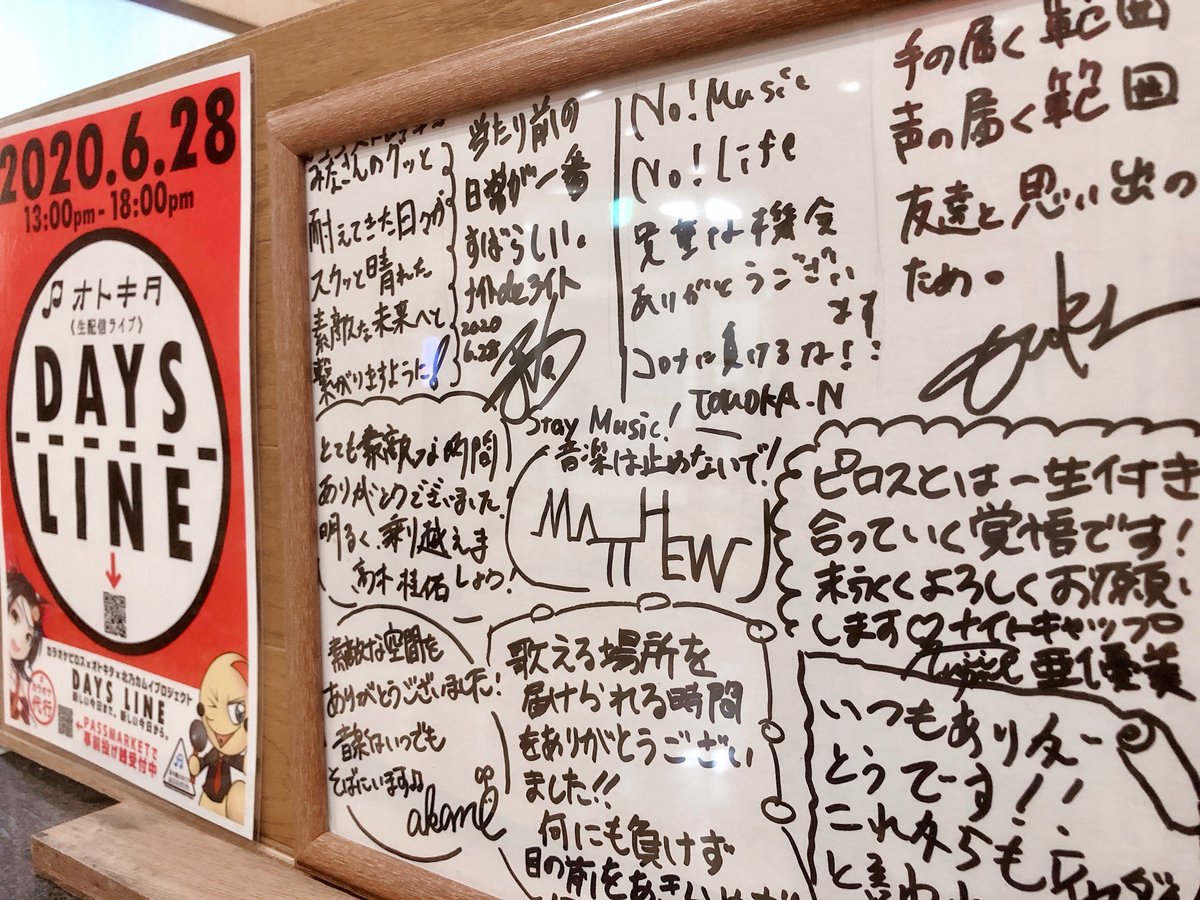 2020.6.28
13:00pm - 18:00pm
オトキタ
《生配信ライブ》
DAYS
LINE
カラオケピロス×オトキタ×北乃カムイプロジェクト
DAYS LINE
新しい今日まで。新しい今日から。
カラオケ
代行
←PASSMARKETで
事前投げ銭受付中
みなさんのグッと
耐えてきた日々が
スクッと晴れた
素敵な未来へと
繋がりますように!
当たり前の
日常が一番
すばらしい。
ナイトdeライト
2020
6.28
No! Music
No! Life
貴重な機会
ありがとうござい
ます
コロナに負けるな!!
TOMOKA.N
手の届く範囲
声の届く範囲
友達と思い出の
ため。
とても素敵な時間
ありがとうございました。
明るく、乗り越えま
しょう!
高木 桂佑
Stay Music!
音楽は止めないで!
MATTHEW
ピロスとは一生付き
合っていく覚悟です!
末永くよろしくお願い
します♡ナイトキャップ
亜優美
素敵な空間を
ありがとうございました!
音楽はいつでも
そばにいます♫
akane
歌える場所を
届けられる時間
をありがとうござい
ました!!
何にも負けず
目の前を
いつもありがー
とうでーす!!
これからも